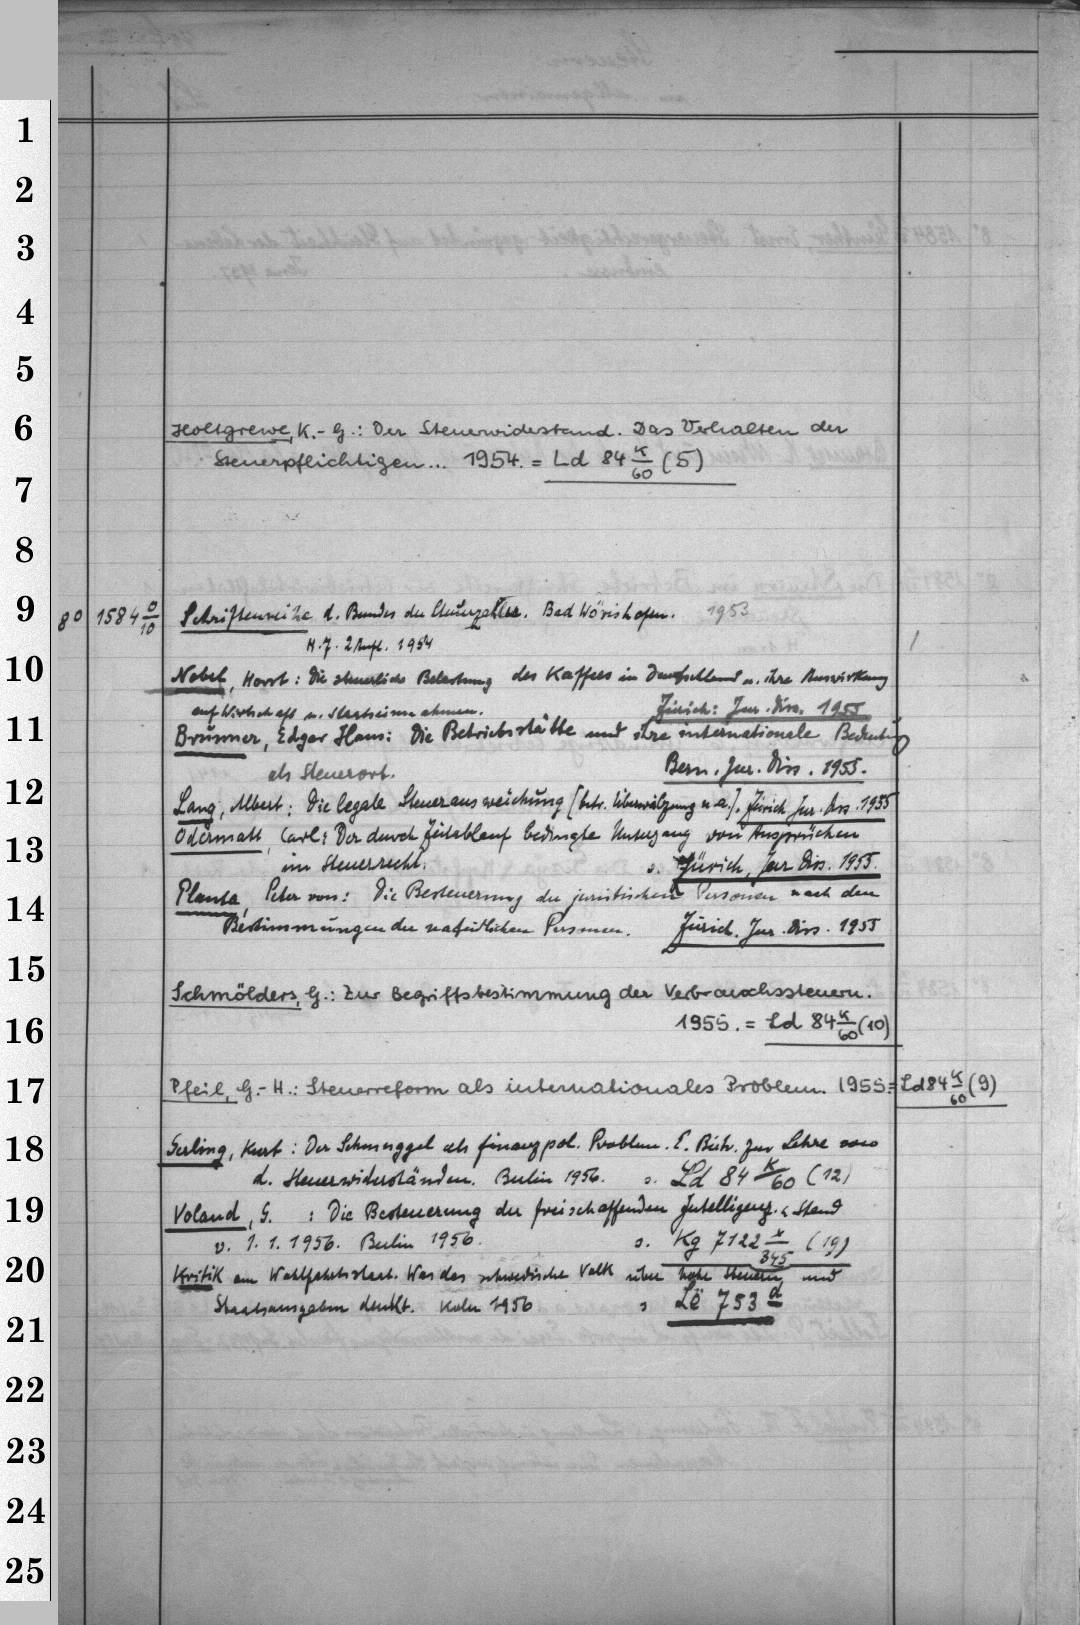 1
2
3
4
5
6
Holtgrewe, K.-G.: Der Steuerwiderstand. Das Verhalten der
Steuerpflichtigen... 1954. = Ld 84 K/60 (5)
7
8
9
8° 1584 0/10 Schriftenreihe d. Bundes der Steuerzahler. Bad Wörishofen. 1953
H. 7. 2 Aufl. 1954
10
Nobel, Horst: Die steuerliche Belastung des Kaffees in Deutschland u. ihre Auswirkung
auf Wirtschaft u. Staatseinnahmen. Zürich: Jur. Diss. 1955
11
Brunner, Edgar Hans: Die Betriebsstätte und ihre internationale Bedeutung
als Steuerort. Bern. Jur. Diss. 1955.
12
Lang, Albert: Die legale Steuerausweichung [betr. Überwälzung u. a.]. Zürich Jur. Diss. 1955
Odermatt, Carl: Der durch Zeitablauf bedingte Untergang von Ansprüchen
13
im Steuerrecht. s. Zürich, Jur Diss. 1955.
14
Planta, Peter von: Die Besteuerung der juristischen Personen nach den
Bestimmungen der natürlichen Personen. Zürich. Jur. Diss. 1955
15
Schmölders, G.: Zur Begriffsbestimmung der Verbrauchssteuern.
16
1955. = Ld 84 K/60 (10)
17
Pfeil, G.-H.: Steuerreform als internationales Problem. 1955 = Ld 84 K/60 (9)
18
Gerling, Kurt: Der Schmuggel als finanzpol. Problem. E. Beitr. zur Lehre von
d. Steuerwiderständen. Berlin 1956. s. Ld 84 K/60 (12)
19
Voland, G. : Die Besteuerung der freischaffenden Intelligenz. Stand
v. 1. 1. 1956. Berlin 1956. s. Kg 7122 x/345 (19)
20
Kritik am Wohlfahrtsstaat. Was das schwedische Volk über hohe Steuern und
Staatsausgaben denkt. Köln 1956 s Lë 753 d
21
22
23
24
25